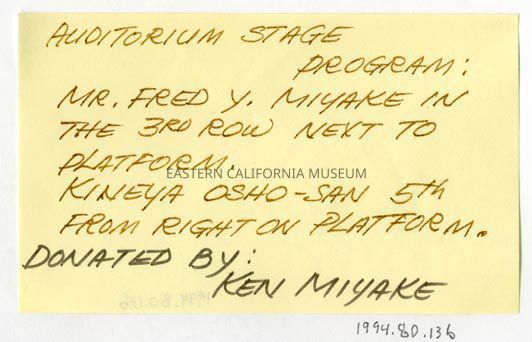 AUDITORIUM STAGE
PROGRAM:
MR. FRED Y. MIYAKE IN
THE 3RD ROW NEXT TO
PLATFORM.
EASTERN CALIFORNIA MUSEUM
KINEYA OSHO-SAN 5th
FROM RIGHT ON PLATFORM.
DONATED BY:
KEN MIYAKE
1994.80.136
1994.80.136